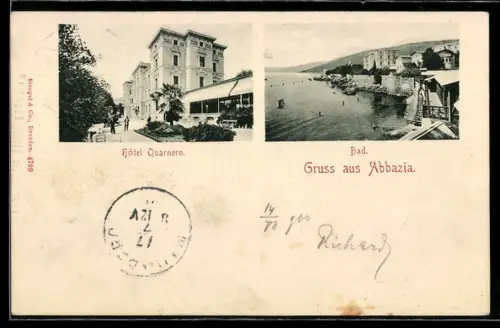 Hôtel Quarnero.
Bad.
Gruss aus Abbazia.
Stengel & Co., Dresden. 4799
14/
Richard
17
7
8 12V